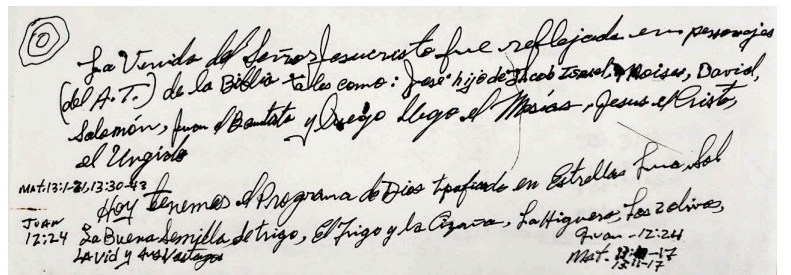 La Venida del Señor Jesucristo fue reflejada en personajes
(del A.T.) de la Biblia tales como: José hijo de Jacob Israel, Moises, David,
Salomón, Juan el Bautista y luego llego el Mesías, Jesus el Cristo,
el Ungido
Mat: 13:1-31, 13:30-43
Hoy tenemos el Programa de Dios tipificado en Estrellas Luna, Sol
JUAN
12:24 La Buena Semilla de trigo, El Trigo y la Cizaña, La Higuera, Los 2 olivos,
LA Vid y sus Vastagos
Juan - 12:24
Mat. 13:11-17